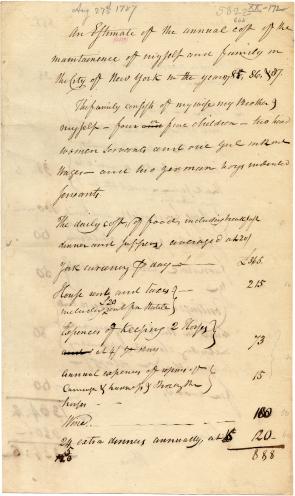 Aug 27th 1787
An Estimate of the annual cost of the
maintainence of myself and family in
the City of New York in the years 85, 86, & 87.
The family consists of my wife my Brother &
myself – four or five children – two hired
women servants and one Girl without
Wages – and two german boys indented
servants.
The daily cost of food, including breakfast
dinner and supper averaged at 20/
York currency pr day – £365.
House rent and taxes 215
Expences of keeping 2 Horses
at 4/ 73
Annual expences of repairs of
Carriage & harness & shoeing the
horses – 15
Wood 100
24 extra dinners annually, at £5 120
888